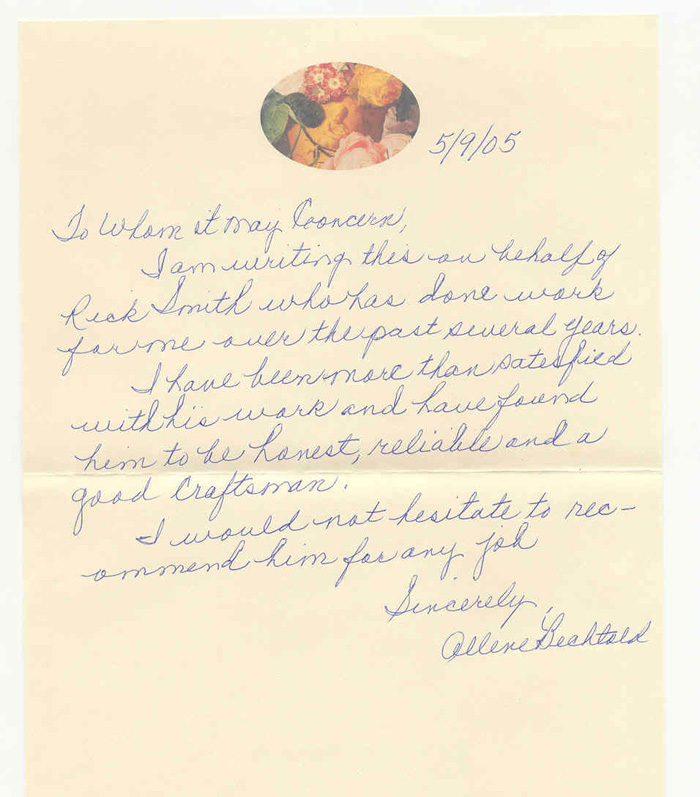 5/9/05
To Whom it may Concern,
I am writing this on behalf of
Rick Smith who has done work
for me over the past several years.
I have been more than satesfied
with his work and have found
him to be honest, reliable and a
good Craftsman.
I would not hesitate to rec-
ommend him for any job
Sincerely,
Allene Bechtold